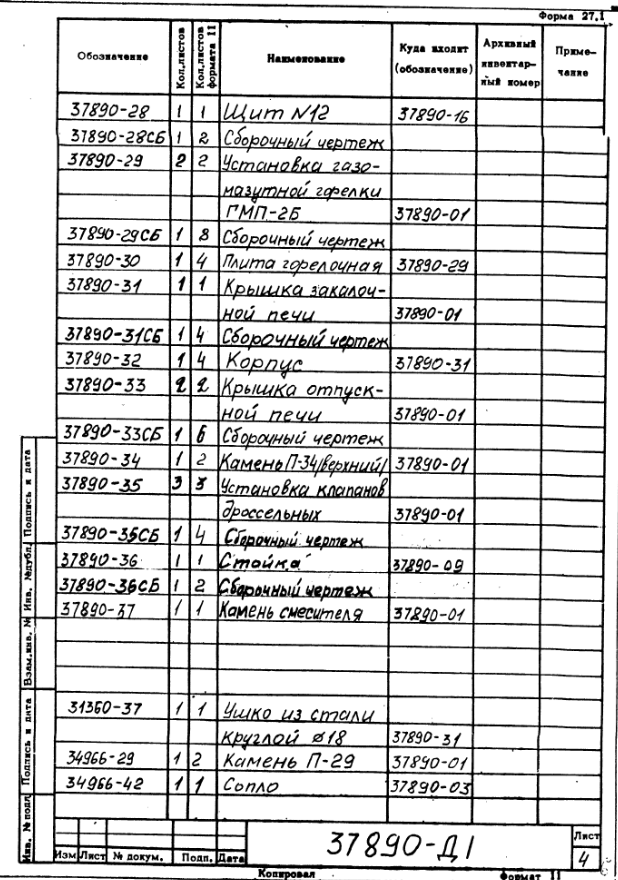 Форма 27.1
Обозначение Кол.листов Кол.листов формата 11 Наименование Куда входит (обозначение) Архивный инвентарный номер Примечание
37890-28 1 1 Щит N12 37890-16
37890-28СБ 1 2 Сборочный чертеж
37890-29 2 2 Установка газо-
мазутной горелки
ГМП-2Б 37890-01
37890-29СБ 1 8 Сборочный чертеж
37890-30 1 4 Плита горелочная 37890-29
37890-31 1 1 Крышка закалоч-
ной печи 37890-01
37890-31СБ 1 4 Сборочный чертеж
37890-32 1 4 Корпус 37890-31
37890-33 2 2 Крышка отпуск-
ной печи 37890-01
37890-33СБ 1 6 Сборочный чертеж
37890-34 1 2 Камень П-34/верхний/ 37890-01
37890-35 3 3 Установка клапанов
дроссельных 37890-01
37890-35СБ 1 4 Сборочный чертеж
37890-36 1 1 Стойка 37890-09
37890-36СБ 1 2 Сборочный чертеж
37890-37 1 1 Камень смесителя 37890-01
31360-37 1 1 Ушко из стали
круглой ø18 37890-31
34966-29 1 2 Камень П-29 37890-01
34966-42 1 1 Сопло 37890-03
Инв. № подл. Подпись и дата Взам.инв. № Инв. №дубл. Подпись и дата
37890-Д1
Лист
4
Изм Лист № докум. Подп. Дата
Копировал Формат 11